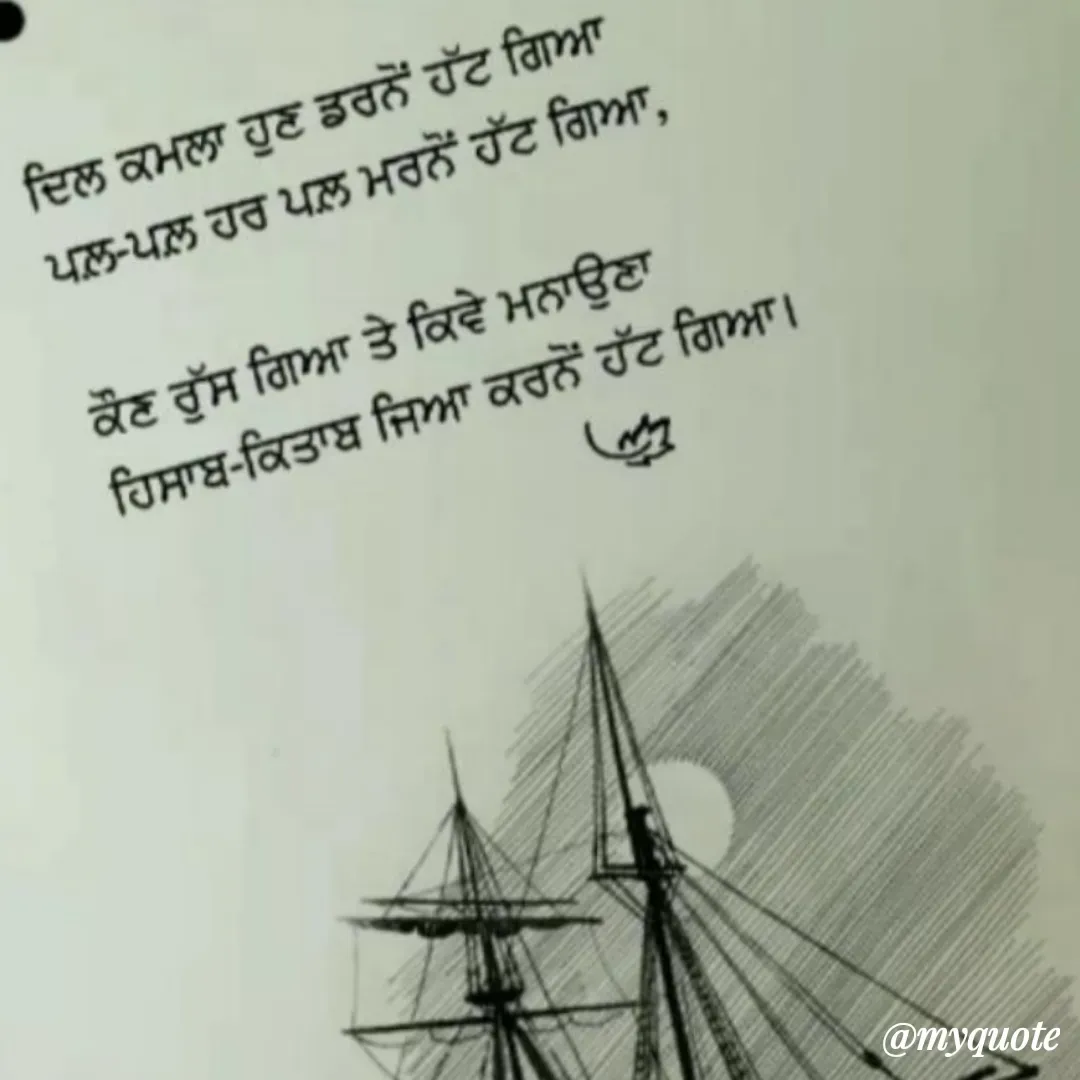 ਦਿਲ ਕਮਲਾ ਹੁਣ ਡਰਨੋਂ ਹੱਟ ਗਿਆ
ਪਲ਼-ਪਲ਼ ਹਰ ਪਲ਼ ਮਰਨੋਂ ਹੱਟ ਗਿਆ,
ਕੌਣ ਰੁੱਸ ਗਿਆ ਤੇ ਕਿਵੇ ਮਨਾਉਣਾ
ਹਿਸਾਬ-ਕਿਤਾਬ ਜਿਆ ਕਰਨੋਂ ਹੱਟ ਗਿਆ।
@myquote